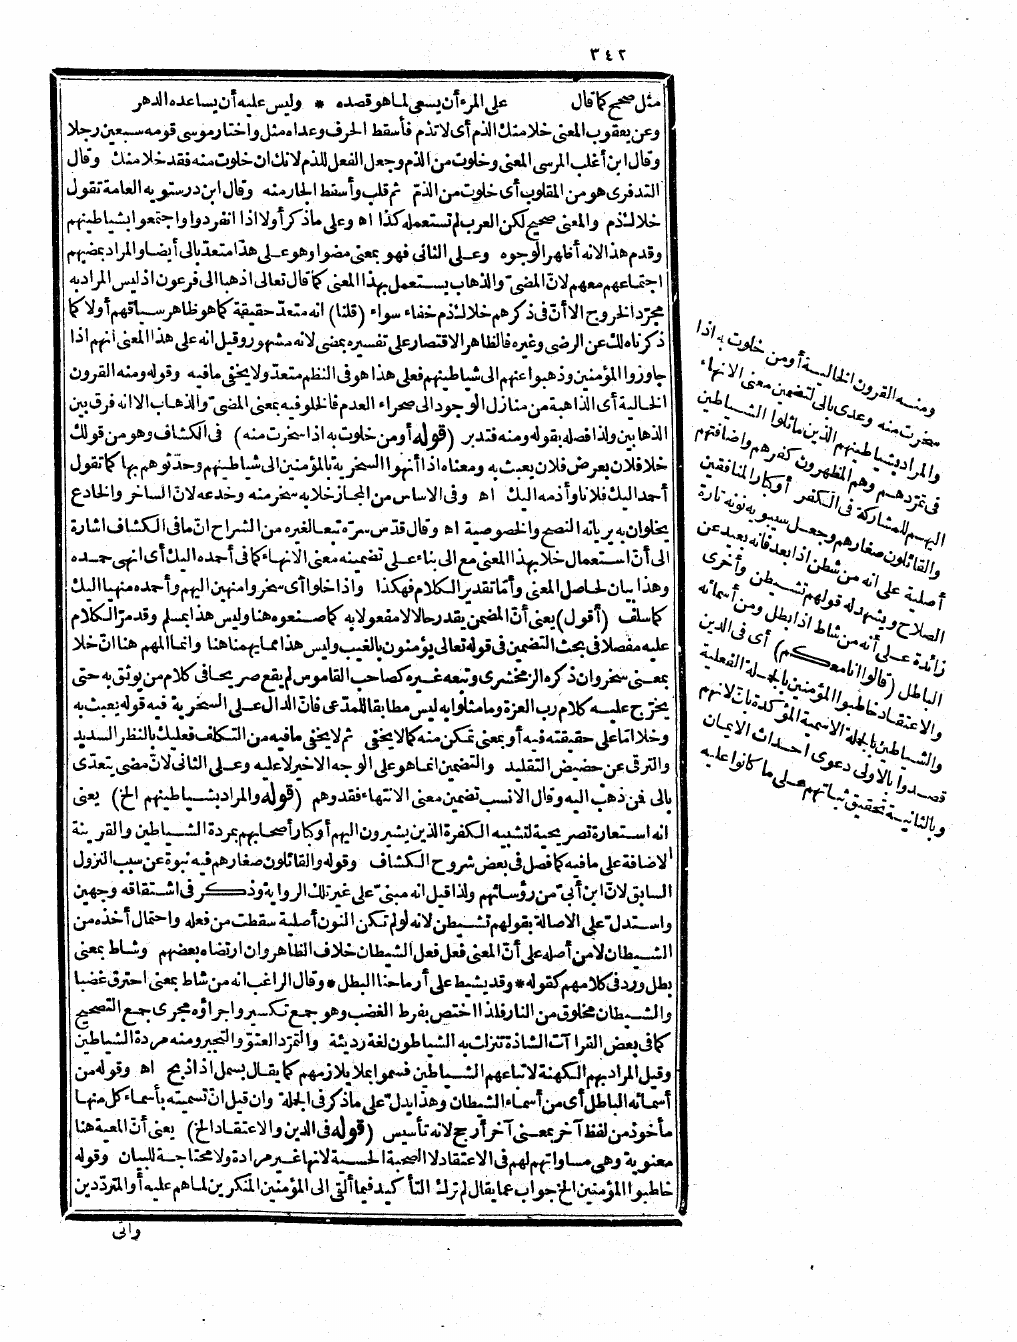 ٣٤٢
مثل صحيح كما قال على المرء أن يسعى لما هو قصده * وليس عليه أن يساعده الدهر
وعن يعقوب المعنى خلا منك الذم أى لا تذم فأسقط الحرف وعداه مثل واختار موسى قومه سبعين رجلا
وقال ابن أغلب المرسى المعنى وخلوت من الذم وجعل الفعل للذم لانك ان خلوت منه فقد خلا منك وقال
التدفرى هو من المقلوب أى خلوت من الذم ثم قلب وأسقط الجار منه وقال ابن درستويه العامة تقول
خلاك ذم والمعنى صحيح لكن العرب لم تستعمله كذا اه وعلى ما ذكر أولا اذا انفردوا واجتمعوا بشياطينهم
وقدم هذا لانه أظهر الوجوه وعلى الثانى فهو بمعنى مضوا وهو على هذا متعد بالى أيضا والمراد بمضيهم
اجتماعهم معهم لان المضى والذهاب يستعمل بهذا المعنى كما قال تعالى اذهبا الى فرعون اذ ليس المراد به
مجرد الخروج الا أن فى ذكرهم خلاك ذم خفاء سواء (قلنا) انه متعد حقيقة كما هو ظاهر سياقهم أولا كما
ذكرناه لك عن الرضى وغيره فالظاهر الاقتصار على تفسيره بمضى لانه مشهور وقيل انه على هذا المعنى انهم اذا
جاوزوا المؤمنين وذهبوا عنهم الى شياطينهم فعلى هذا هو فى النظم متعد ولا يخفى ما فيه وقوله ومنه القرون
الخالية أى الذاهبة من منازل الوجود الى صحراء العدم فالخلو فيه بمعنى المضى والذهاب الا انه فرق بين
الذهابين ولذا فصله بقوله ومنه فتدبر (قوله أو من خلوت به اذا سخرت منه) فى الكشاف وهو من قولك
خلا فلان بعرض فلان يعبث به ومعناه اذا أنهوا السخرية بالمؤمنين الى شياطينهم وحدثوهم بها كما تقول
أحمد اليك فلانا وأذمه اليك اه وفى الاساس من المجاز خلا به سخر منه وخدعه لان الساخر والخادع
يخلوان به يريانه النصح والخصوصية اه وقال قدس سره تبعا لغيره من الشراح ان ما فى الكشاف اشارة
الى أن استعمال خلا بهذا المعنى مع الى بناء على تضمينه معنى الانهاء كما فى أحمده اليك أى انهى حمده
وهذا بيان لحاصل المعنى وأما تقدير الكلام فهكذا واذا خلوا أى سخروا منهين اليهم وأحمده منهيا اليك
كما سلف (أقول) يعنى أن المضمن يقدر حالا لا مفعولا به كما صنعوه هنا وليس هذا بمسلم وقد مر الكلام
عليه مفصلا فى بحث التضمين فى قوله تعالى يؤمنون بالغيب وليس هذا مما يهمنا هنا وانما المهم هنا ان خلا
بمعنى سخر وان ذكره الزمخشرى وتبعه غيره كصاحب القاموس لم يقع صريحا فى كلام من يوثق به حتى
يخرج عليه كلام رب العزة وما مثلوا به ليس مطابقا للمدعى فان الدال على السخرية فيه قوله يعبث به
وخلا اما على حقيقته فيه أو بمعنى تمكن منه كما لا يخفى ثم لا يخفى ما فيه من التكلف فعليك بالنظر السديد
والترقى عن حضيض التقليد والتضمين انما هو على الوجه الاخير لا عليه وعلى الثانى لان مضى يتعدى
بالى فمن ذهب اليه وقال الانسب تضمين معنى الانتهاء فقد وهم (قوله والمراد بشياطينهم الخ) يعنى
انه استعارة تصريحية لتشبيه الكفرة الذين يشيرون اليهم أو كبار أصحابهم بمردة الشياطين والقرينة
الاضافة على ما فيه كما فصل فى بعض شروح الكشاف وقوله والقائلون صغارهم فيه نبوة عن سبب النزول
السابق لان ابن أبى من رؤسائهم ولذا قيل انه مبنى على غير تلك الرواية وذكر فى اشتقاقه وجهين
واستدل على الاصالة بقولهم تشيطن لانه لو لم تكن النون أصلية سقطت من فعله واحتمال أخذه من
الشيطان لا من أصله على أن المعنى فعل فعل الشيطان خلاف الظاهر وان ارتضاه بعضهم وشاط بمعنى
بطل ورد فى كلامهم كقوله * وقد يشيط على أرماحنا البطل * وقال الراغب انه من شاط بمعنى احترق غضبا
والشيطان مخلوق من النار فلذا اختص بفرط الغضب وهو جمع تكسير واجراؤه مجرى جمع التصحيح
كما فى بعض القرا آت الشاذة تنزلت به الشياطون لغة رديئة والتمرد العتو والتجبر ومنه مردة الشياطين
وقيل المراد بهم الكهنة لاتباعهم الشياطين فسموا بما يلازمهم كما يقال بسمل اذا ذبح اه وقوله من
أسمائه الباطل أى من أسماء الشيطان وهذا يدل على ما ذكر فى الجملة وان قيل ان تسميته بأسماء كل منها
مأخوذ من لفظ آخر بمعنى آخر أرجح لانه تأسيس (قوله فى الدين والاعتقاد الخ) يعنى أن المعية هنا
معنوية وهى مساواتهم لهم فى الاعتقاد لا الصحبة الحسية لانها غير مرادة ولا محتاجة للبيان وقوله
خاطبوا المؤمنين الخ جواب عما يقال لم ترك التأكيد فيما ألقى الى المؤمنين المنكرين لما هم عليه أو المترددين
واتى
ومنه القرون الخالية أو من خلوت به اذا
سخرت منه وعدى بالى لتضمين معنى الانهاء
والمراد بشياطينهم الذين ماثلوا الشياطين
فى تمردهم وهم المظهرون كفرهم واضافتهم
اليهم للمشاركة فى الكفر أو كبار المنافقين
والقائلون صغارهم وجعل سيبويه نونه تارة
أصلية على انه من شطن اذا بعد فانه بعيد عن
الصلاح ويشهد له قولهم تشيطن وأخرى
زائدة على أنه من شاط اذا بطل ومن أسمائه
الباطل (قالوا انا معكم) أى فى الدين
والاعتقاد خاطبوا المؤمنين بالجملة الفعلية
والشياطين بالجملة الاسمية المؤكدة بان لانهم
قصدوا بالاولى دعوى احداث الايمان
وبالثانية تحقيق ثباتهم على ما كانوا عليه